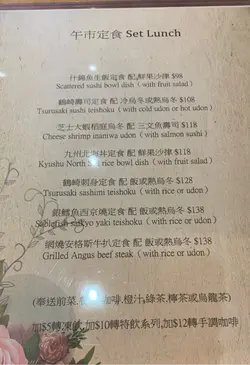 午市定食 Set Lunch
什錦魚生飯定食 配,鮮果沙律 $98
Scattered sushi bowl dish (with fruit salad)
鶴崎壽司定食 配 冷烏冬或熱烏冬 $108
Tsurusaki sushi teishoku (with cold udon or hot udon)
芝士大蝦稻庭烏冬 配 三文魚壽司 $118
Cheese shrimp inaniwa udon (with salmon sushi)
九州北海丼定食 配,鮮果沙律 $118
Kyushu North rice bowl dish (with fruit salad)
鶴崎刺身定食 配 飯或熱烏冬 $128
Tsurusaki sashimi teishoku (with rice or udon)
銀鱈魚西京燒定食 配 飯或熱烏冬 $138
Sablefish saikyo yaki teishoku (with rice or udon)
網燒安格斯牛扒定食 配 飯或熱烏冬 $138
Grilled Angus beef steak (with rice or udon)
(奉送前菜, 咖啡,橙汁,綠茶,檸茶或烏龍茶)
加$5轉凍飲,加$10轉特飲系列,加$12轉手調咖啡